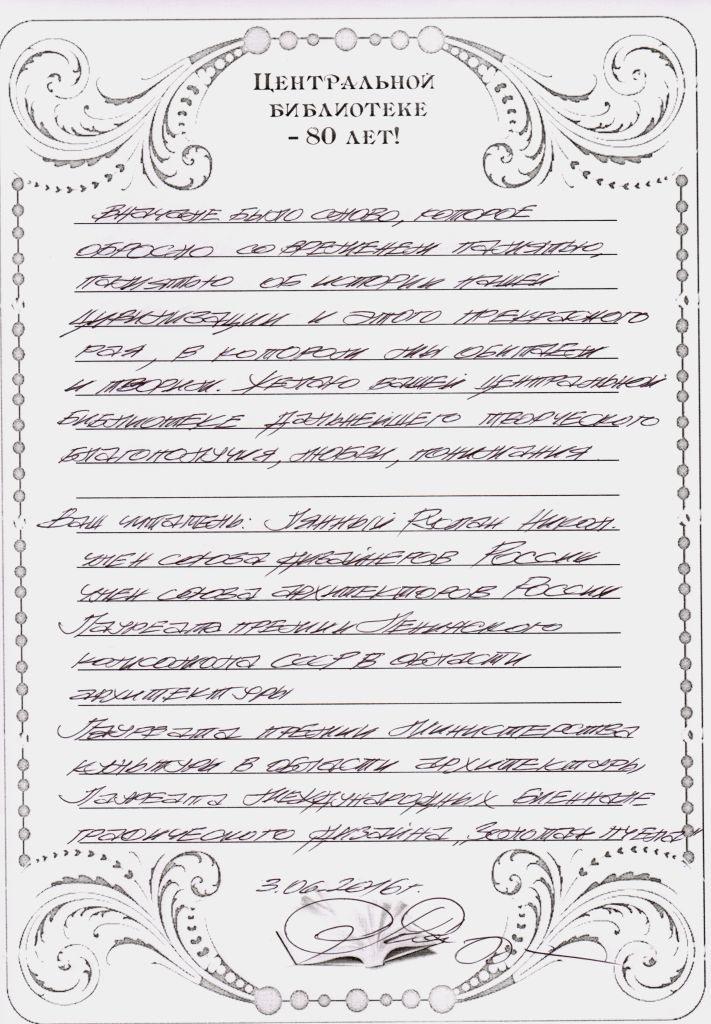 ЦЕНТРАЛЬНОЙ
БИБЛИОТЕКЕ
- 80 ЛЕТ!
Вначале было слово, которое
обросло со временем памятью,
памятью об истории нашей
цивилизации и этого прекрасного
рая, в котором мы обитаем
и творим. Желаю вашей центральной
библиотеке дальнейшего творческого
благополучия, любви, понимания.
Ваш читатель: Лянный Руслан Никол.
член союза дизайнеров России
член союза архитекторов России
Лауреата премии Ленинского
комсомола СССР в области
архитектуры
Лауреата премии Министерства
культуры в области архитектуры
Лауреата международных биеннале
графического дизайна „Золотая пчела"
3.06.2016г.